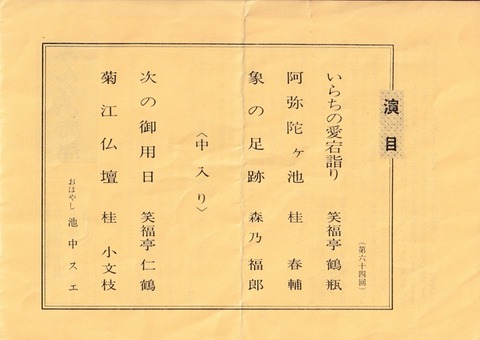 演目
(第六十四回)
いらちの愛宕詣り 笑福亭 鶴瓶
阿弥陀ヶ池 桂 春輔
象の足跡 森乃福郎
〈中入り〉
次の御用日 笑福亭 仁鶴
菊江仏壇 桂 小文枝
おはやし 池中スエ